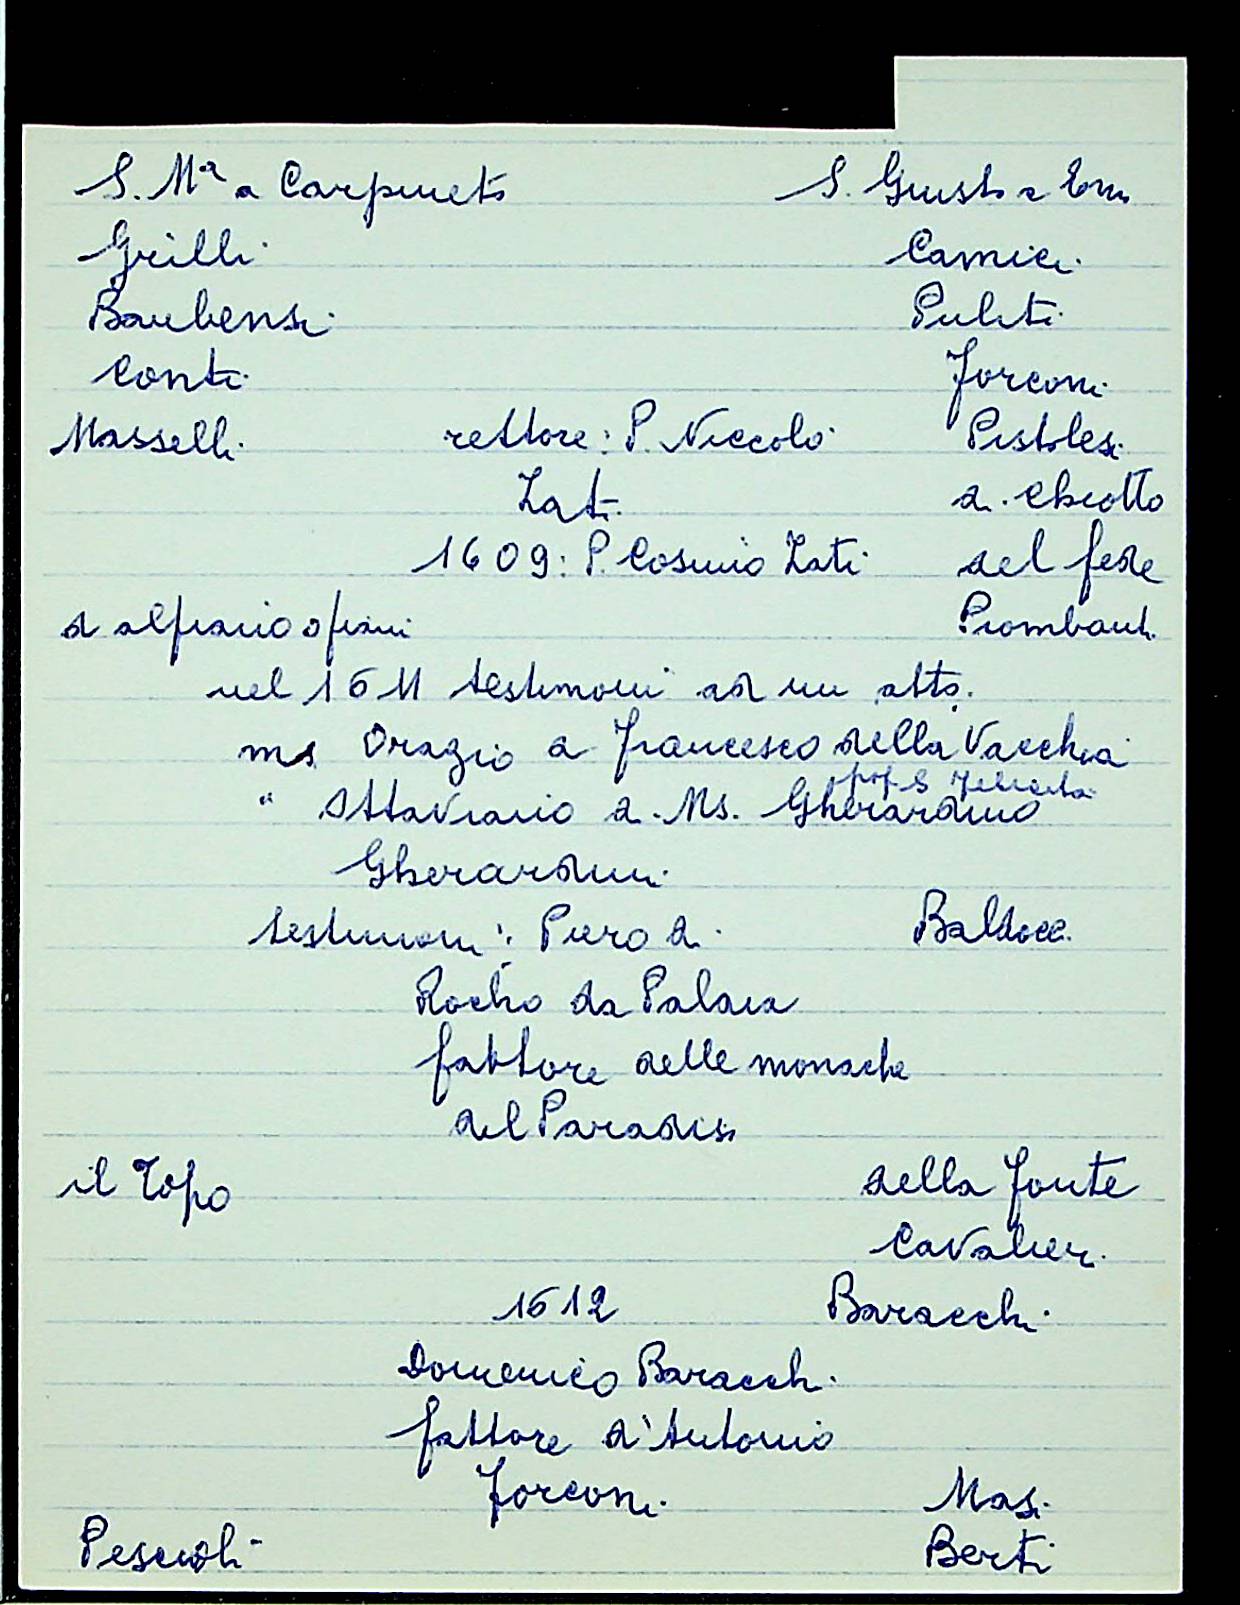 S. Mª a Carpineto S. Giusto a Ema
Grilli Camici
Baubensi Puliti
Conti Forconi
Masselli rettore: P. Niccolò Pistolesi
Zati di Chiotto
1609: P. Cosimo Zati del fede
d
nel 1611 testimoni ad un atto.
ms Orazio di Francesco della Vacchia
prop. S Felicita
" Ottaviano di Ms. Gherardino
Gherardini
testimoni: Piero di Baldocci
Rocho da Palaia
fattore delle monache
del Paradiso
il Topo della fonte
Cavalieri
1612 Baracchi
Domenico Baracchi
fattore d'Antonio
Forconi Masi
Pescioli Berti